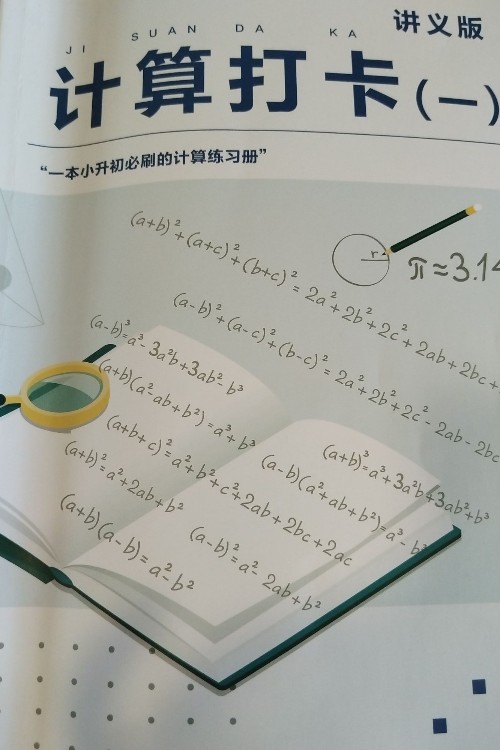 讲义版
JI SUAN DA KA
计算打卡(一)
“一本小升初必刷的计算练习册”
(a+b)²+(a+c)²+(b+c)²=2a²+2b²+2c²+2ab+2bc+
r
π≈3.14
(a-b)²+(a-c)²+(b-c)²=2a²+2b²+2c²-2ab-2bc
(a-b)³=a³-3a²b+3ab²-b³
(a+b)(a²-ab+b²)=a³+b³
(a+b+c)²=a²+b²+c²+2ab+2bc+2ac
(a+b)²=a²+2ab+b²
(a+b)(a-b)=a²-b²
(a+b)³=a³+3a²b+3ab²+b³
(a-b)(a²+ab+b²)=a³-b³
(a-b)²=a²-2ab+b²